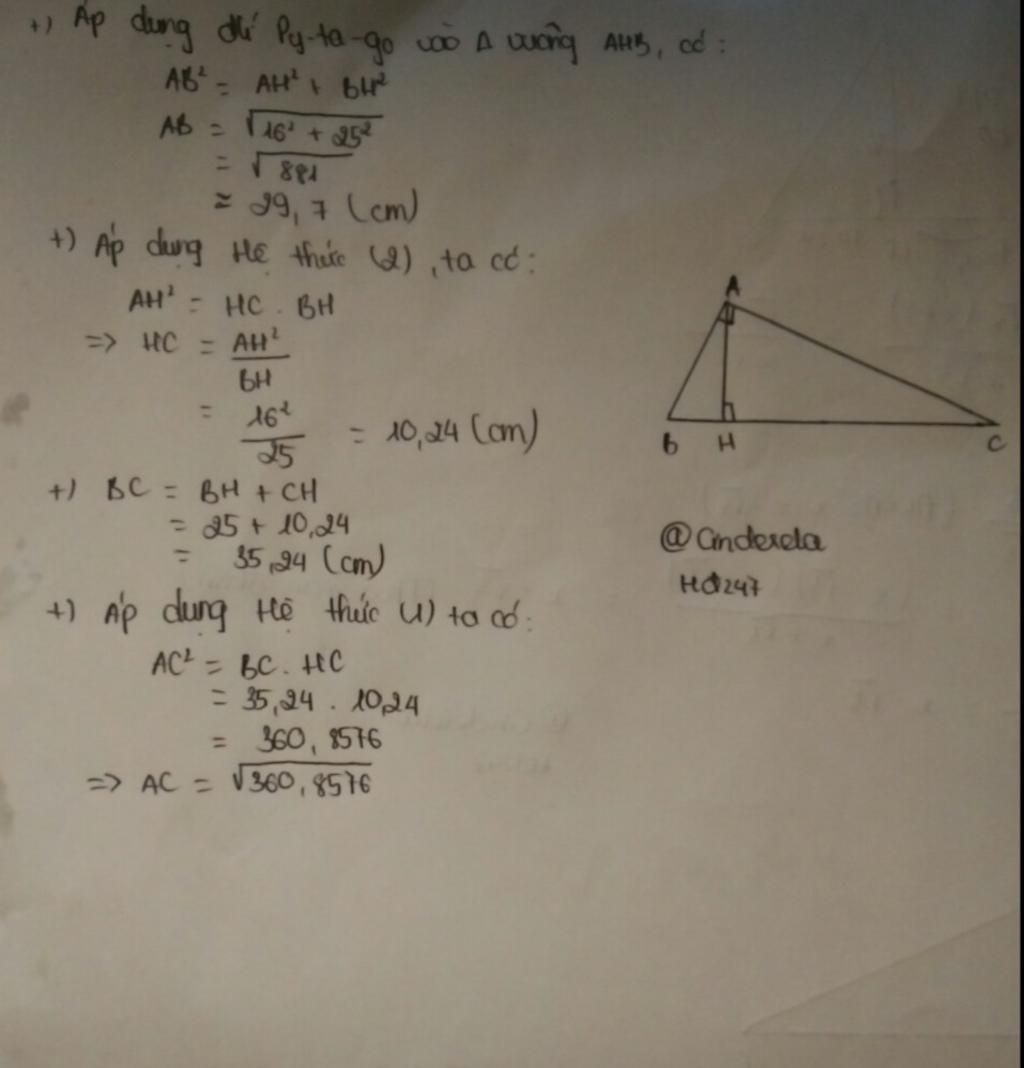 +) Áp dụng đlí Py-ta-go vào Δ vuông AHB, có:
AB² = AH² + BH²
AB = √16² + 25²
= √881
≈ 29,7 (cm)
+) Áp dụng Hệ thức (2), ta có:
AH² = HC . BH
=> HC = AH²
BH
= 16²
25
= 10,24 (cm)
+) BC = BH + CH
= 25 + 10,24
= 35,24 (cm)
+) Áp dụng Hệ thức (1) ta có:
AC² = BC . HC
= 35,24 . 10,24
= 360,8576
=> AC = √360,8576
A
B H C
@Cinderela